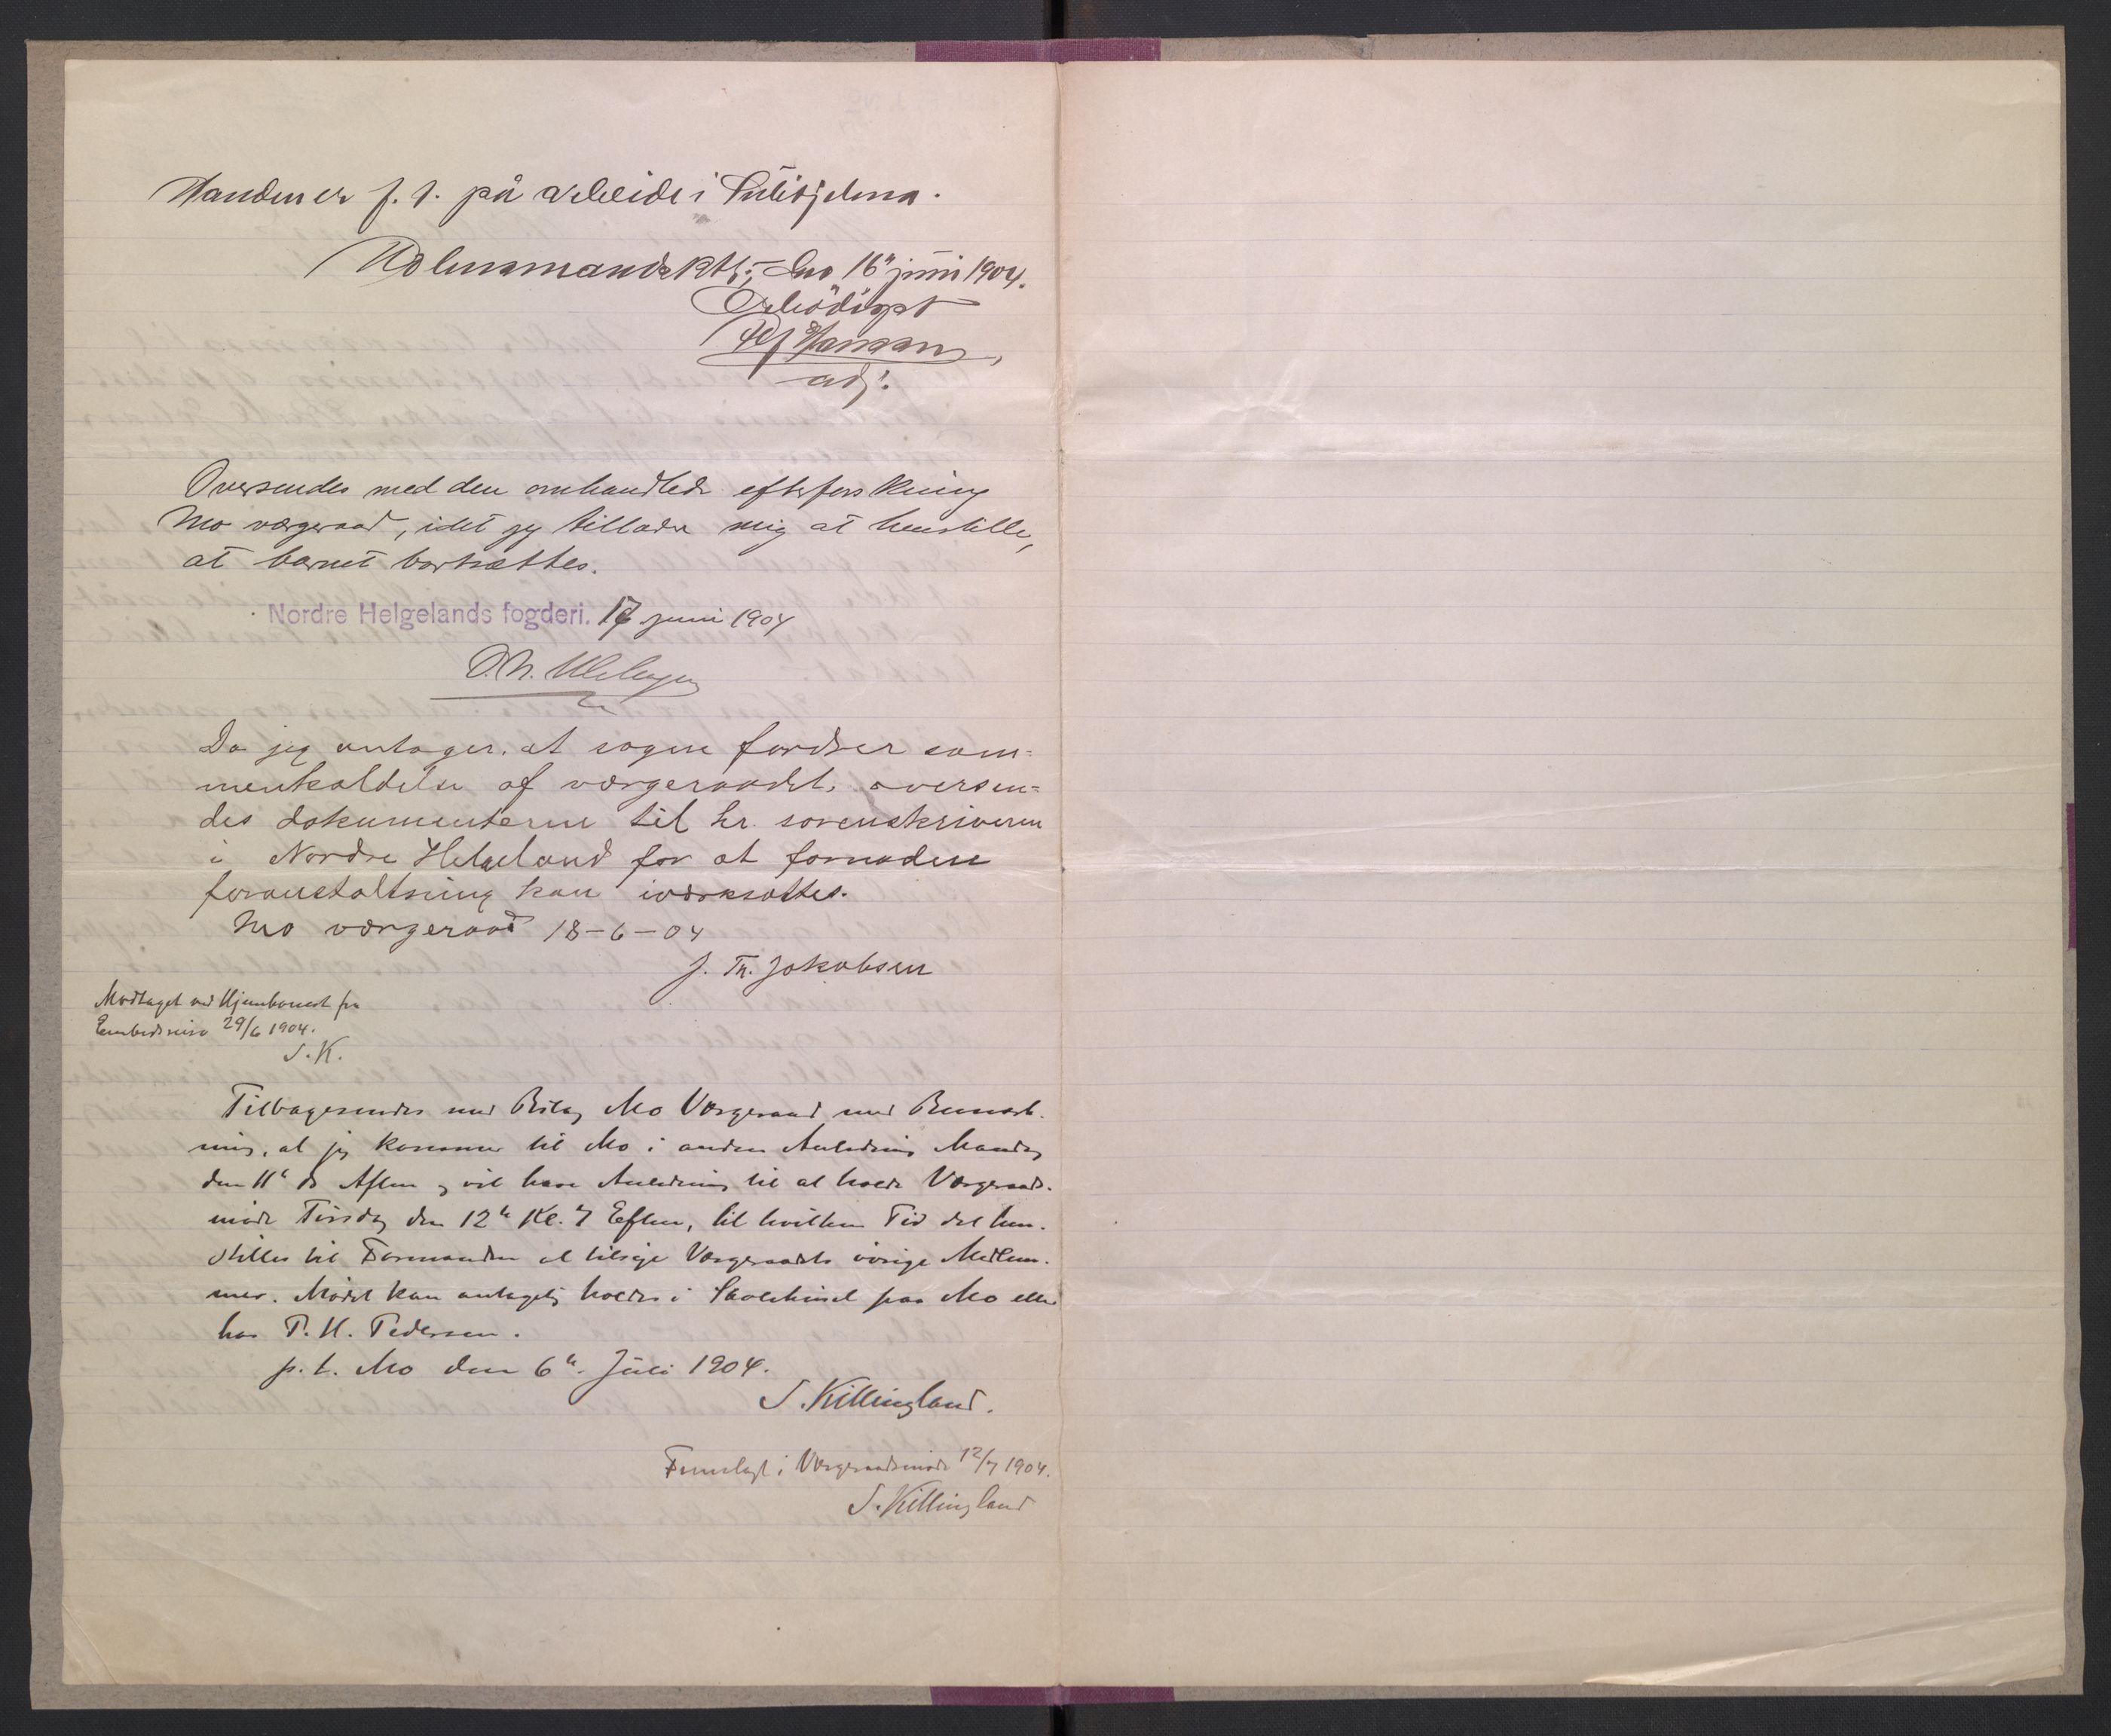 Manden er f. t. på arbeide i Sulitjelma.
Mo lensmandsktr., Mo 16 juni 1904.
Ærbödigst
Hansen,
adj.
Oversendes med den omhandlede efterforskning
Mo værgeraad, idet jeg tillader mig at henstille,
at barnet bortsættes.
Nordre Helgelands fogderi. 17 juni 1904
Da jeg antager, at sagen fordrer sam-
menkaldelse af værgeraadet, oversen-
des dokumenterne til hr. sorenskriveren
i Nordre Helgeland for at fornøden
foranstaltning kan iværksættes.
Mo værgeraad 18-6-04
J. Th. Jakobsen
Modtaget ved Hjemkomst fra
Embedsreise 29/6 1904.
S. K.
Tilbagesendes med Bilag Mo Værgeraad med Bemærk-
ning, at jeg kommer til Mo i anden Anledning Mandag
den 11te ds Aften og vil have Anledning til at holde Værgeraads-
møde Tirsdag den 12te Kl. 7 Efterm, til hvilken Tid det hen-
stilles til Formanden at tilsige Værgeraadets øvrige Medlem-
mer. Mødet kan antagelig holdes i Skolehuset paa Mo eller
hos P. H. Pedersen.
p. t. Mo den 6te Juli 1904.
S. Killingland.
Fremlagt i Værgeraadsmøde 12/7 1904.
S. Killingland